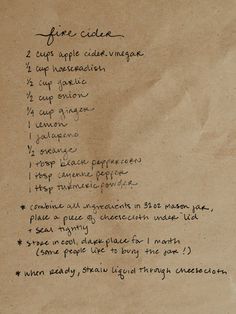 fire cider
2 cups apple cider vinegar
½ cup horseradish
½ cup garlic
½ cup onion
¼ cup ginger
1 lemon
1 jalapeno
½ orange
1 tbsp black peppercorn
1 tbsp cayenne pepper
1 tbsp turmeric powder
* combine all ingredients in 32oz mason jar,
place a piece of cheesecloth under lid
+ seal tightly
* store in cool, dark place for 1 month
(some people like to bury the jar!)
* when ready, strain liquid through cheesecloth